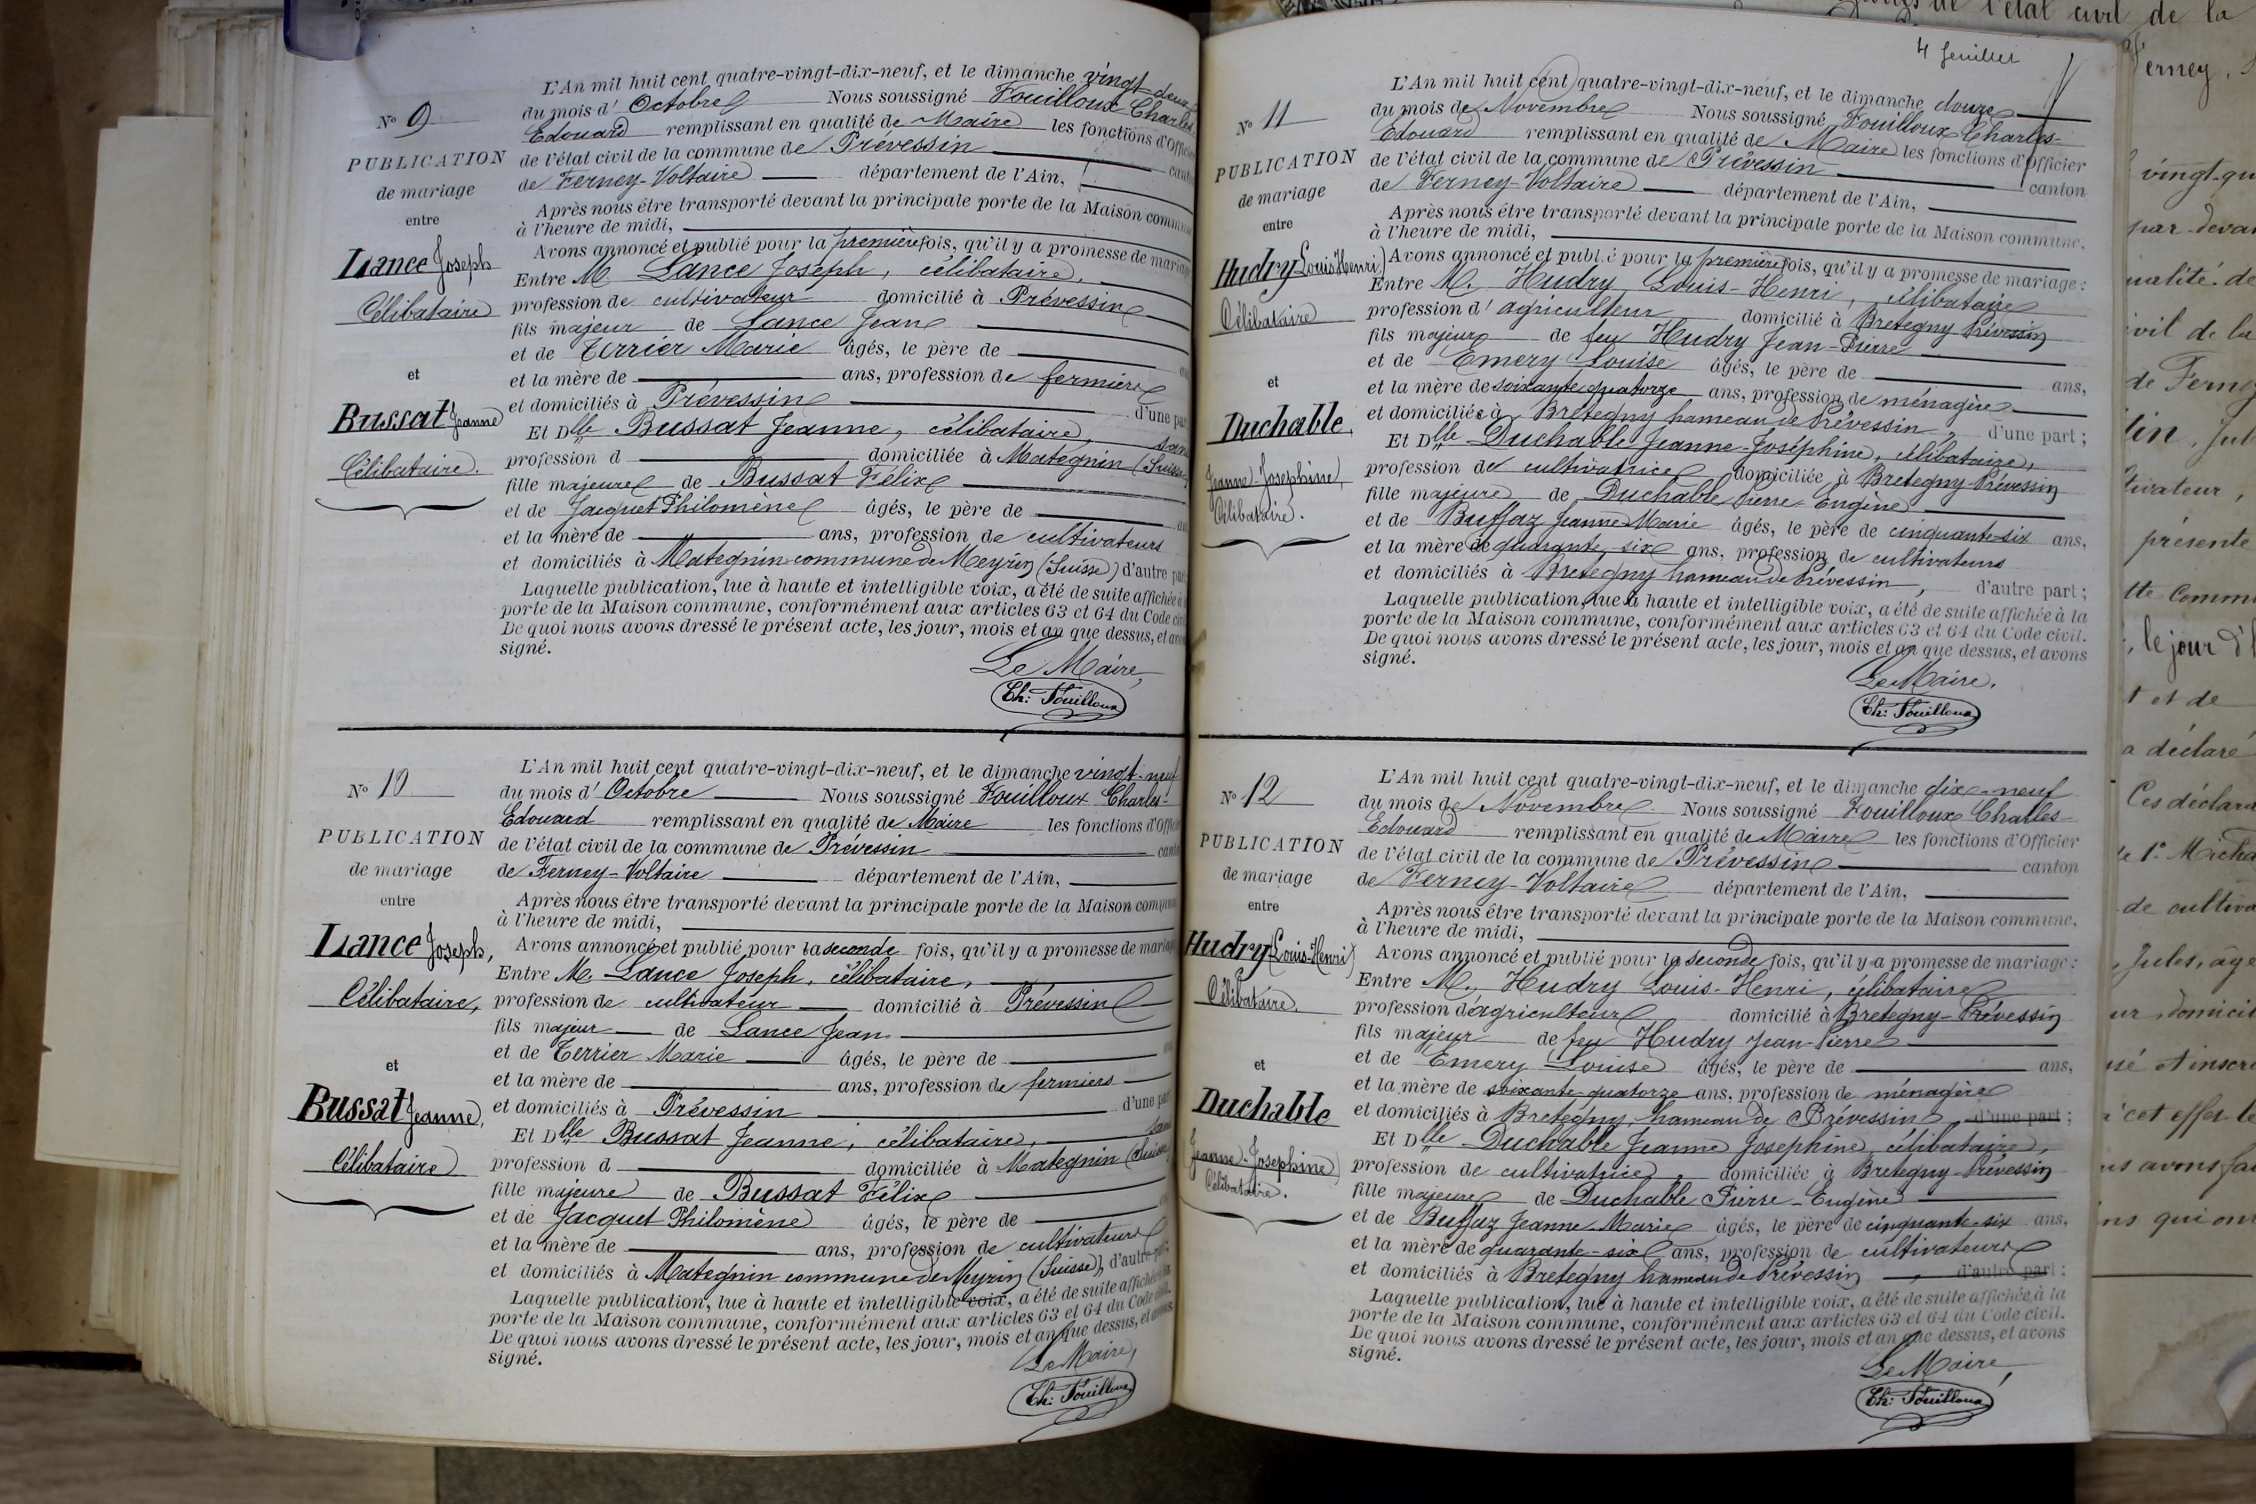 N° 9
PUBLICATION
de mariage
entre
Lance Joseph
Célibataire
et
Bussat Jeanne
Célibataire.
L'An mil huit cent quatre-vingt-dix-neuf, et le dimanche vingt-deux
du mois d' Octobre Nous soussigné Fouilloux Charles
Edouard remplissant en qualité de Maire les fonctions d'Officier
de l'état civil de la commune de Prévessin canton
de Ferney-Voltaire département de l'Ain,
Après nous être transporté devant la principale porte de la Maison commune
à l'heure de midi,
Avons annoncé et publié pour la première fois, qu'il y a promesse de mariage
Entre M. Lance Joseph, célibataire,
profession de cultivateur domicilié à Prévessin
fils majeur de Lance Jean
et de Terrier Marie âgés, le père de
et la mère de ans, profession de fermiers
et domiciliés à Prévessin d'une part
Et Dlle Bussat Jeanne, célibataire, sans
profession d domiciliée à Mategnin (Suisse)
fille majeure de Bussat Félix
et de Jacquet Philomène âgés, le père de
et la mère de ans, profession de cultivateurs
et domiciliés à Mategnin commune de Meyrin (Suisse) d'autre part
Laquelle publication, lue à haute et intelligible voix, a été de suite affichée à
porte de la Maison commune, conformément aux articles 63 et 64 du Code civil
De quoi nous avons dressé le présent acte, les jour, mois et an que dessus, et avons
signé.
Le Maire,
Ch: Fouilloux
N° 10
PUBLICATION
de mariage
entre
Lance Joseph,
Célibataire,
et
Bussat Jeanne,
Célibataire
L'An mil huit cent quatre-vingt-dix-neuf, et le dimanche vingt-neuf
du mois d' Octobre Nous soussigné Fouilloux Charles-
Edouard remplissant en qualité de Maire les fonctions d'Officier
de l'état civil de la commune de Prévessin canton
de Ferney-Voltaire département de l'Ain,
Après nous être transporté devant la principale porte de la Maison commune
à l'heure de midi,
Avons annoncé et publié pour la seconde fois, qu'il y a promesse de mariage
Entre M. Lance Joseph, célibataire,
profession de cultivateur domicilié à Prévessin
fils majeur de Lance Jean
et de Terrier Marie âgés, le père de
et la mère de ans, profession de fermiers
et domiciliés à Prévessin d'une part
Et Dlle Bussat Jeanne, célibataire, sans
profession d domiciliée à Mategnin (Suisse)
fille majeure de Bussat Félix
et de Jacquet Philomène âgés, le père de
et la mère de ans, profession de cultivateurs
et domiciliés à Mategnin commune de Meyrin (Suisse), d'autre part
Laquelle publication, lue à haute et intelligible voix, a été de suite affichée à la
porte de la Maison commune, conformément aux articles 63 et 64 du Code civil.
De quoi nous avons dressé le présent acte, les jour, mois et an que dessus, et avons
signé.
Le Maire,
Ch: Fouilloux
4 feuillet
N° 11
PUBLICATION
de mariage
entre
Hudry (Louis Henri)
Célibataire
et
Duchable,
Jeanne-Josephine,
Célibataire.
L'An mil huit cent quatre-vingt-dix-neuf, et le dimanche douze
du mois de Novembre Nous soussigné Fouilloux Charles-
Edouard remplissant en qualité de Maire les fonctions d'Officier
de l'état civil de la commune de Prévessin canton
de Ferney-Voltaire département de l'Ain,
Après nous être transporté devant la principale porte de la Maison commune,
à l'heure de midi,
Avons annoncé et publié pour la première fois, qu'il y a promesse de mariage :
Entre M. Hudry Louis-Henri, célibataire
profession d' agriculteur domicilié à Bretegny-Prévessin
fils majeur de feu Hudry Jean-Pierre
et de Emery Louise âgés, le père de ans,
et la mère de soixante quatorze ans, profession de ménagère
et domiciliés à Bretegny hameau de Prévessin, d'une part ;
Et Dlle Duchable Jeanne-Joséphine, célibataire,
profession de cultivatrice domiciliée à Bretegny-Prévessin
fille majeure de Duchable Pierre-Eugène
et de Buffaz Jeanne-Marie âgés, le père de cinquante-six ans,
et la mère de quarante-six ans, profession de cultivateurs
et domiciliés à Bretegny hameau de Prévessin, d'autre part ;
Laquelle publication, lue à haute et intelligible voix, a été de suite affichée à la
porte de la Maison commune, conformément aux articles 63 et 64 du Code civil.
De quoi nous avons dressé le présent acte, les jour, mois et an que dessus, et avons
signé.
Le Maire,
Ch: Fouilloux
N° 12
PUBLICATION
de mariage
entre
Hudry (Louis-Henri)
Célibataire.
et
Duchable
Jeanne-Josephine
Célibataire.
L'An mil huit cent quatre-vingt-dix-neuf, et le dimanche dix-neuf
du mois de Novembre Nous soussigné Fouilloux Charles-
Edouard remplissant en qualité de Maire les fonctions d'Officier
de l'état civil de la commune de Prévessin canton
de Ferney-Voltaire département de l'Ain,
Après nous être transporté devant la principale porte de la Maison commune,
à l'heure de midi,
Avons annoncé et publié pour la seconde fois, qu'il y a promesse de mariage :
Entre M. Hudry Louis-Henri, célibataire
profession d'agriculteur domicilié à Bretegny-Prévessin
fils majeur de feu Hudry Jean-Pierre
et de Emery Louise âgés, le père de ans,
et la mère de soixante-quatorze ans, profession de ménagère
et domiciliés à Bretegny, hameau de Prévessin d'une part ;
Et Dlle Duchable Jeanne Josephine, célibataire,
profession de cultivatrice domiciliée à Bretegny-Prévessin
fille majeure de Duchable Pierre-Eugène
et de Buffaz Jeanne-Marie âgés, le père de cinquante-six ans,
et la mère de quarante-six ans, profession de cultivateurs
et domiciliés à Bretegny hameau de Prévessin, d'autre part ;
Laquelle publication, lue à haute et intelligible voix, a été de suite affichée à la
porte de la Maison commune, conformément aux articles 63 et 64 du Code civil.
De quoi nous avons dressé le présent acte, les jour, mois et an que dessus, et avons
signé.
Le Maire,
Ch: Fouilloux
de l'état civil de la
Ferney,
vingt-qu
par-devan
ualité de
ivil de la
de Ferney
tin, Jul
tivateur,
présente
tte commu
, le jour d'h
t et de
a déclaré
Ces déclara
de cultiva
, Jules, âgé
ur, domicil
sé et inscri
à cet effet le
us avons fai
ns qui ont